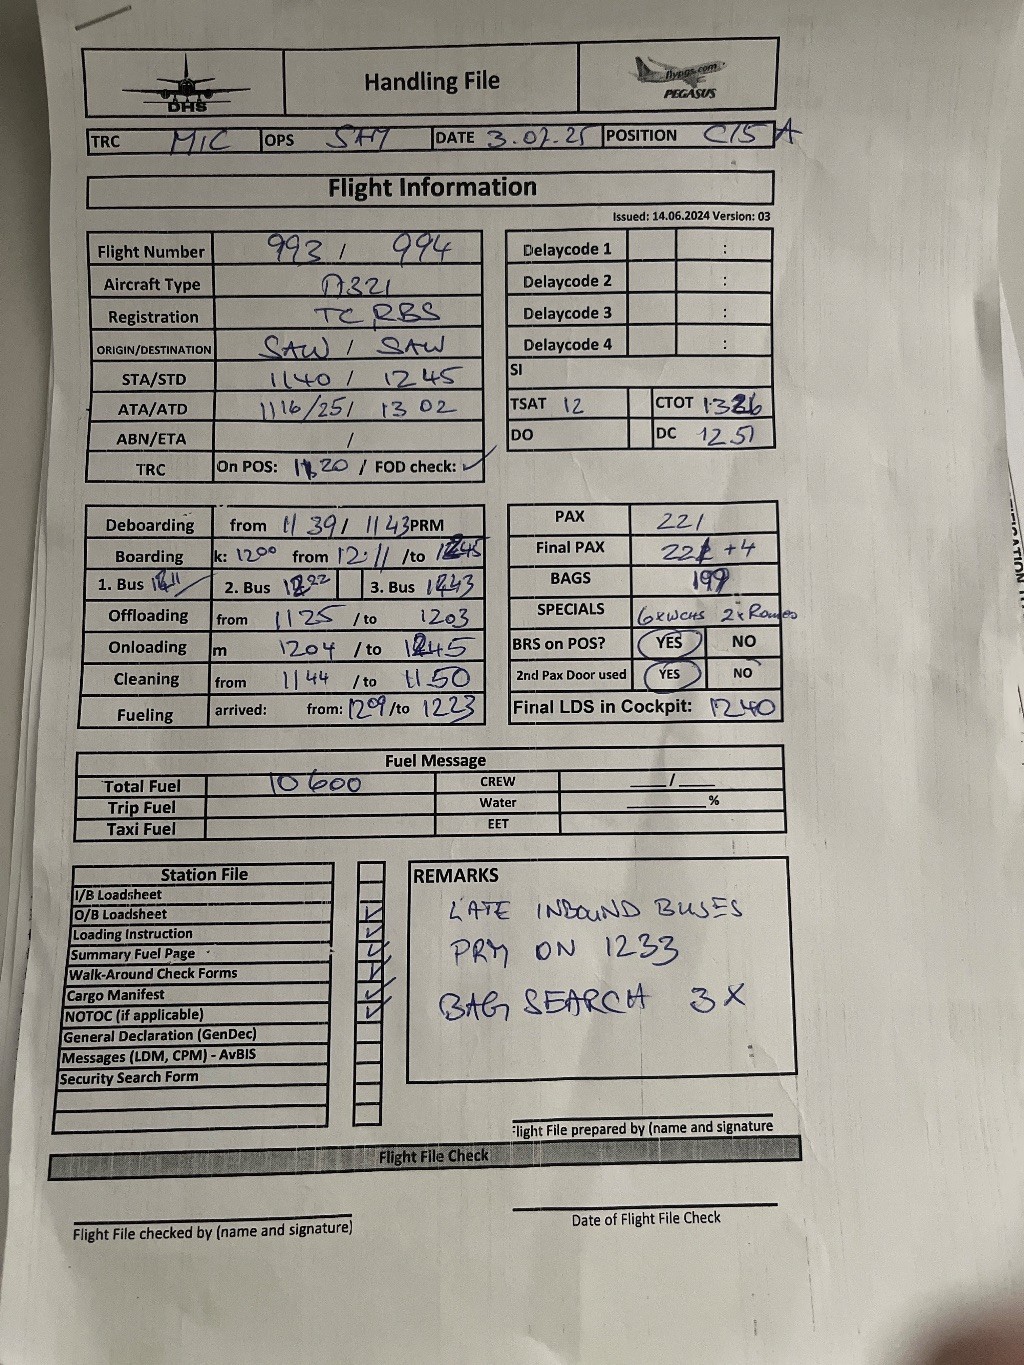 DHS Handling File flypgs.com PEGASUS
TRC MIC OPS DATE 3.07.25 POSITION C15 A
Flight Information
Issued: 14.06.2024 Version: 03
Flight Number 993 / 994
Aircraft Type A321
Registration TC RBS
ORIGIN/DESTINATION SAW / SAW
STA/STD 1140 / 1245
ATA/ATD 1116/25/ 1302
ABN/ETA /
TRC On POS: 1120 / FOD check: ✓
Delaycode 1 :
Delaycode 2 :
Delaycode 3 :
Delaycode 4 :
SI
TSAT 12 CTOT
DO DC 1251
Deboarding from 1139 / 1143 PRM
Boarding k: 1200 from 12:11 /to 1245
1. Bus 2. Bus 1222 3. Bus 1243
Offloading from 1125 /to 1203
Onloading m 1204 /to 1245
Cleaning from 1144 /to 1150
Fueling arrived: from: 1209 /to 1223
PAX 221
Final PAX +4
BAGS 199
SPECIALS 6xWCHS 2x
BRS on POS? YES NO
2nd Pax Door used YES NO
Final LDS in Cockpit: 1240
Fuel Message
Total Fuel 10600 CREW ___/___
Trip Fuel Water ______%
Taxi Fuel EET
Station File
I/B Loadsheet
O/B Loadsheet ✓
Loading Instruction ✓
Summary Fuel Page ✓
Walk-Around Check Forms ✓
Cargo Manifest ✓
NOTOC (if applicable) ✓
General Declaration (GenDec)
Messages (LDM, CPM) - AvBIS
Security Search Form
REMARKS
LATE INBOUND BUSES
PRM ON 1233
BAG SEARCH 3X
light File prepared by (name and signature
Flight File Check
Flight File checked by (name and signature)
Date of Flight File Check